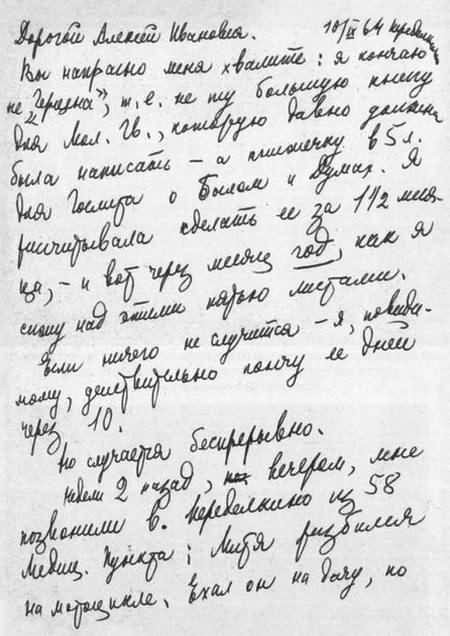 10/IX 64 Переделкино
Дорогой Алексей Иванович.
Вы напрасно меня хвалите: я кончаю
не „Герцена“, т.е. не ту большую книгу
для Мол. Гв., которую давно должна
была написать – а книжечку в 5 л.
для Гослита о Былом и Думах. Я
рассчитывала сделать ее за 1 1/2 меся-
ца, – и вот через месяц год, как я
сижу над этими пятью листами.
Если ничего не случится – я, повиди-
мому, действительно кончу ее дней
через 10.
Но случается беспрерывно.
Недели 2 назад, вечером, мне
позвонили в Переделкино из 58
Медиц. Пункта: Митя разбился
на мотоцикле. Ехал он на дачу, но